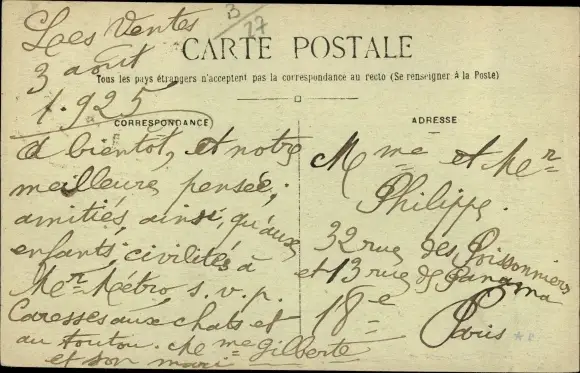 Les Ventes
3 août
1.925
3/27
CARTE POSTALE
Tous les pays étrangers n'acceptent pas la correspondance au recto (Se renseigner à la Poste)
CORRESPONDANCE
à bientôt, et notre
meilleure pensée,
amitiés, ainsi, qu'aux
enfants, civilités à
Mer Métro s.v.p.
Caresses aux chats et
au toutou. Me me Gilberte
et son mari
ADRESSE
Mme et Mer
Philippe.
32 rue des Poissonniers
et 13 rue de Panama
18e
Paris